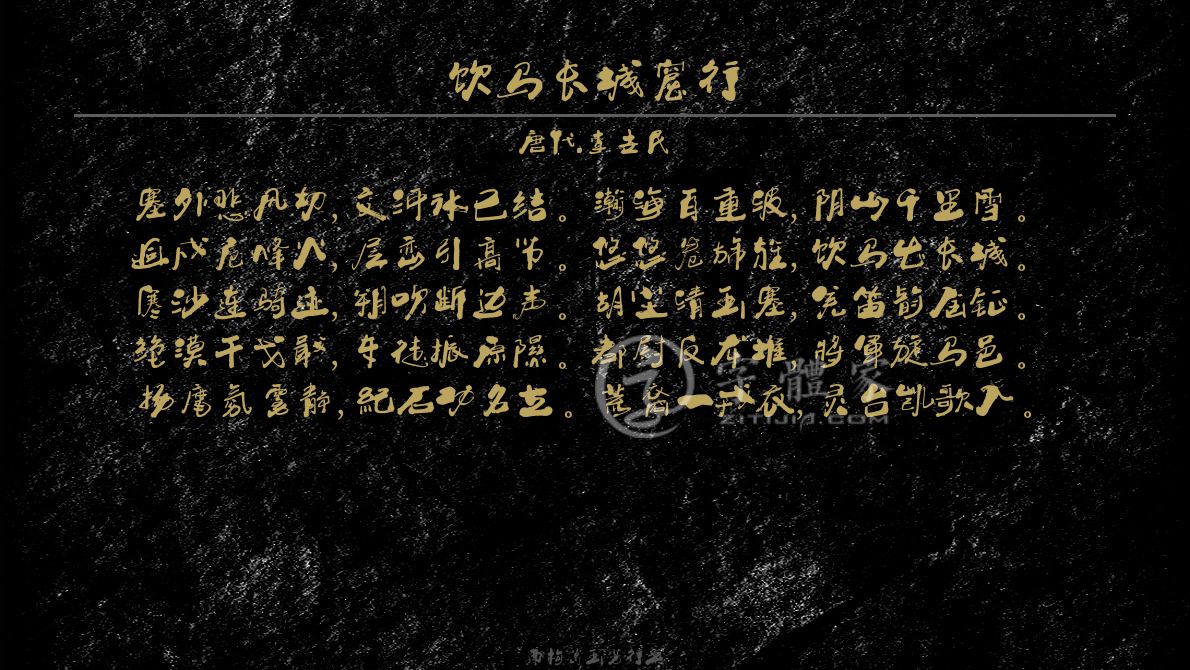 饮马长城窟行
唐代.李世民
塞外悲风切,交河冰已结。瀚海百重波,阴山千里雪。
迥戍危烽火,层峦引高节。悠悠卷旆旌,饮马出长城。
寒沙连骑迹,朔吹断边声。胡尘清玉塞,羌笛韵金钲。
绝漠干戈戢,车徒振原隰。都尉反龙堆,将军旋马邑。
扬麾氛雾静,纪石功名立。荒裔一戎衣,灵台凯歌入。
字體家
ZITIJIA.COM